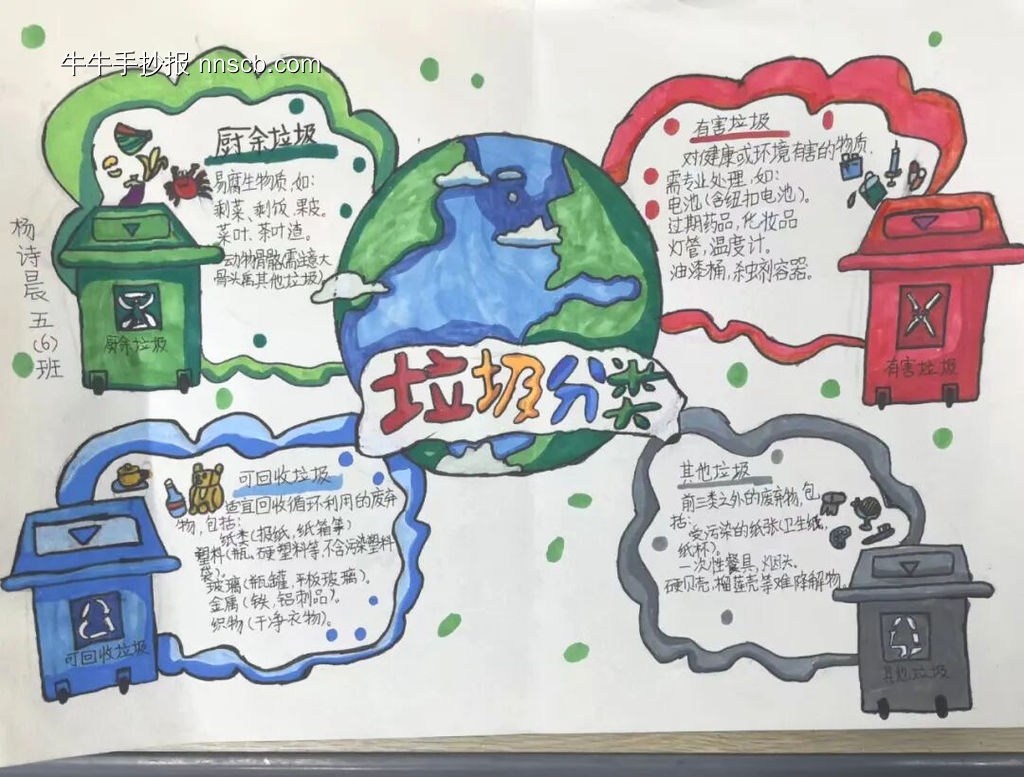 牛牛手抄报 nnscb.com
杨诗晨 五(6)班
厨余垃圾
易腐生物质,如:
剩菜、剩饭、果皮。
菜叶、茶叶渣。
动物骨骼(需注意大
骨头属其他垃圾)
厨余垃圾
有害垃圾
对健康或环境有害的物质,
需专业处理,如:
电池(含纽扣电池)。
过期药品,化妆品
灯管,温度计.
油漆桶,杀虫剂容器.
有害垃圾
垃圾分类
可回收垃圾
适宜回收循环利用的废弃
物,包括:
纸类(报纸,纸箱等)
塑料(瓶,硬塑料等,不含污染塑料
袋)。
玻璃(瓶罐,平板玻璃)。
金属(铁,铝制品)。
织物(干净衣物)。
可回收垃圾
其他垃圾
前三类之外的废弃物,包
括:
受污染的纸张(卫生纸,
纸杯).
一次性餐具,烟头.
硬贝壳,榴莲壳等难降解物。
其他垃圾